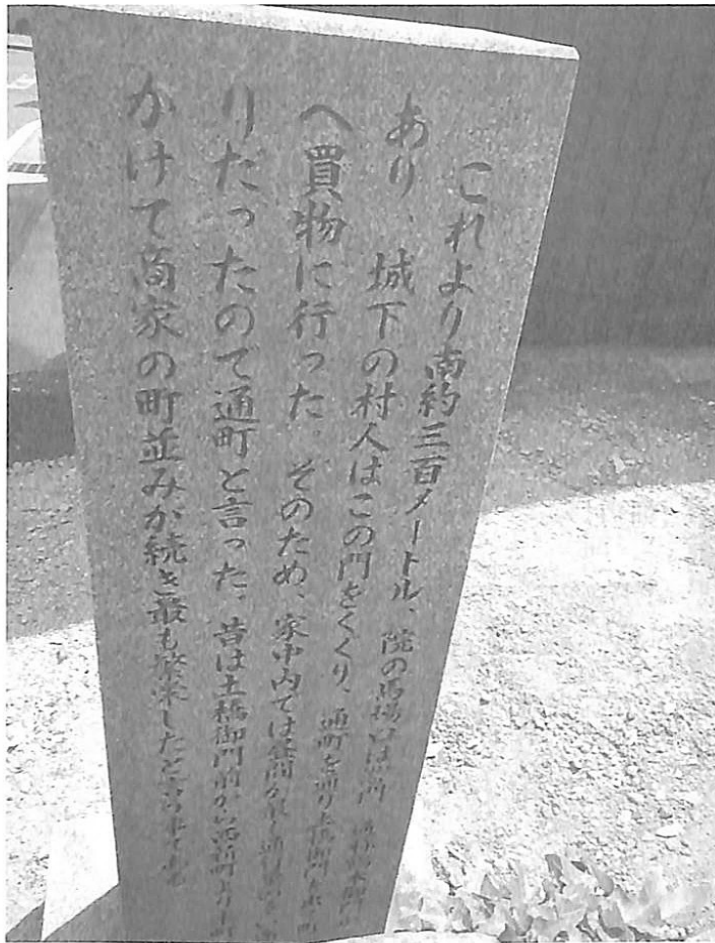 これより南約三百メートル、院の馬場口は黒門
あり、城下の村人はこの門をくぐり、通町を通り土橋御門を
へ買物に行った。そのため、家中内では昼間が最も通行
りだったので通町と言った。昔は土橋御門前から
かけて商家の町並みが続き最も繁栄したと